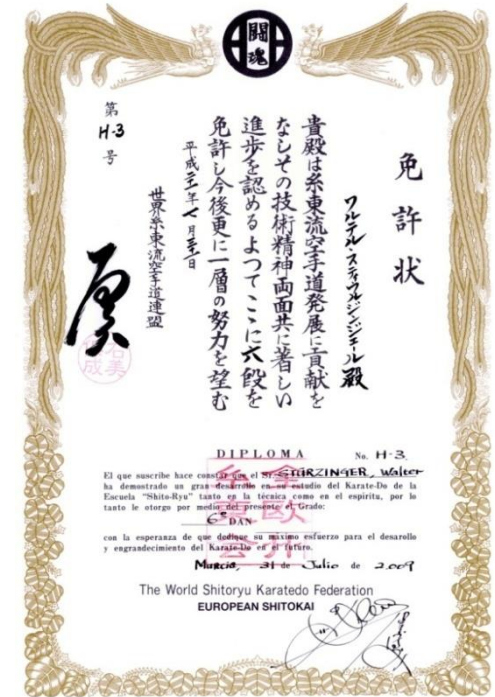 闘魂
免許状
ワルテル・スティウルジンジェール殿
貴殿は糸東流空手道発展に貢献を
なしその技術精神両面共に著しい
進歩を認めるよつてここに六段を
免許し今後更に一層の努力を望む
平成二十一年七月三十一日
世界糸東流空手道連盟
第
H-3
号
DIPLOMA No. H-3
El que suscribe hace constar que el Sr STÜRZINGER, Walter
ha demostrado un gran desarrollo en su estudio del Karate-Do de la
Escuela "Shito-Ryu" tanto en la técnica como en el espíritu, por lo
tanto le otorgo por medio del presente el Grado:
6º DAN
con la esperanza de que dedique su máximo esfuerzo para el desarollo
y engrandecimiento del Karate-Do en el futuro.
Murcia, 31 de Julio de 2.009
The World Shitoryu Karatedo Federation
EUROPEAN SHITOKAI